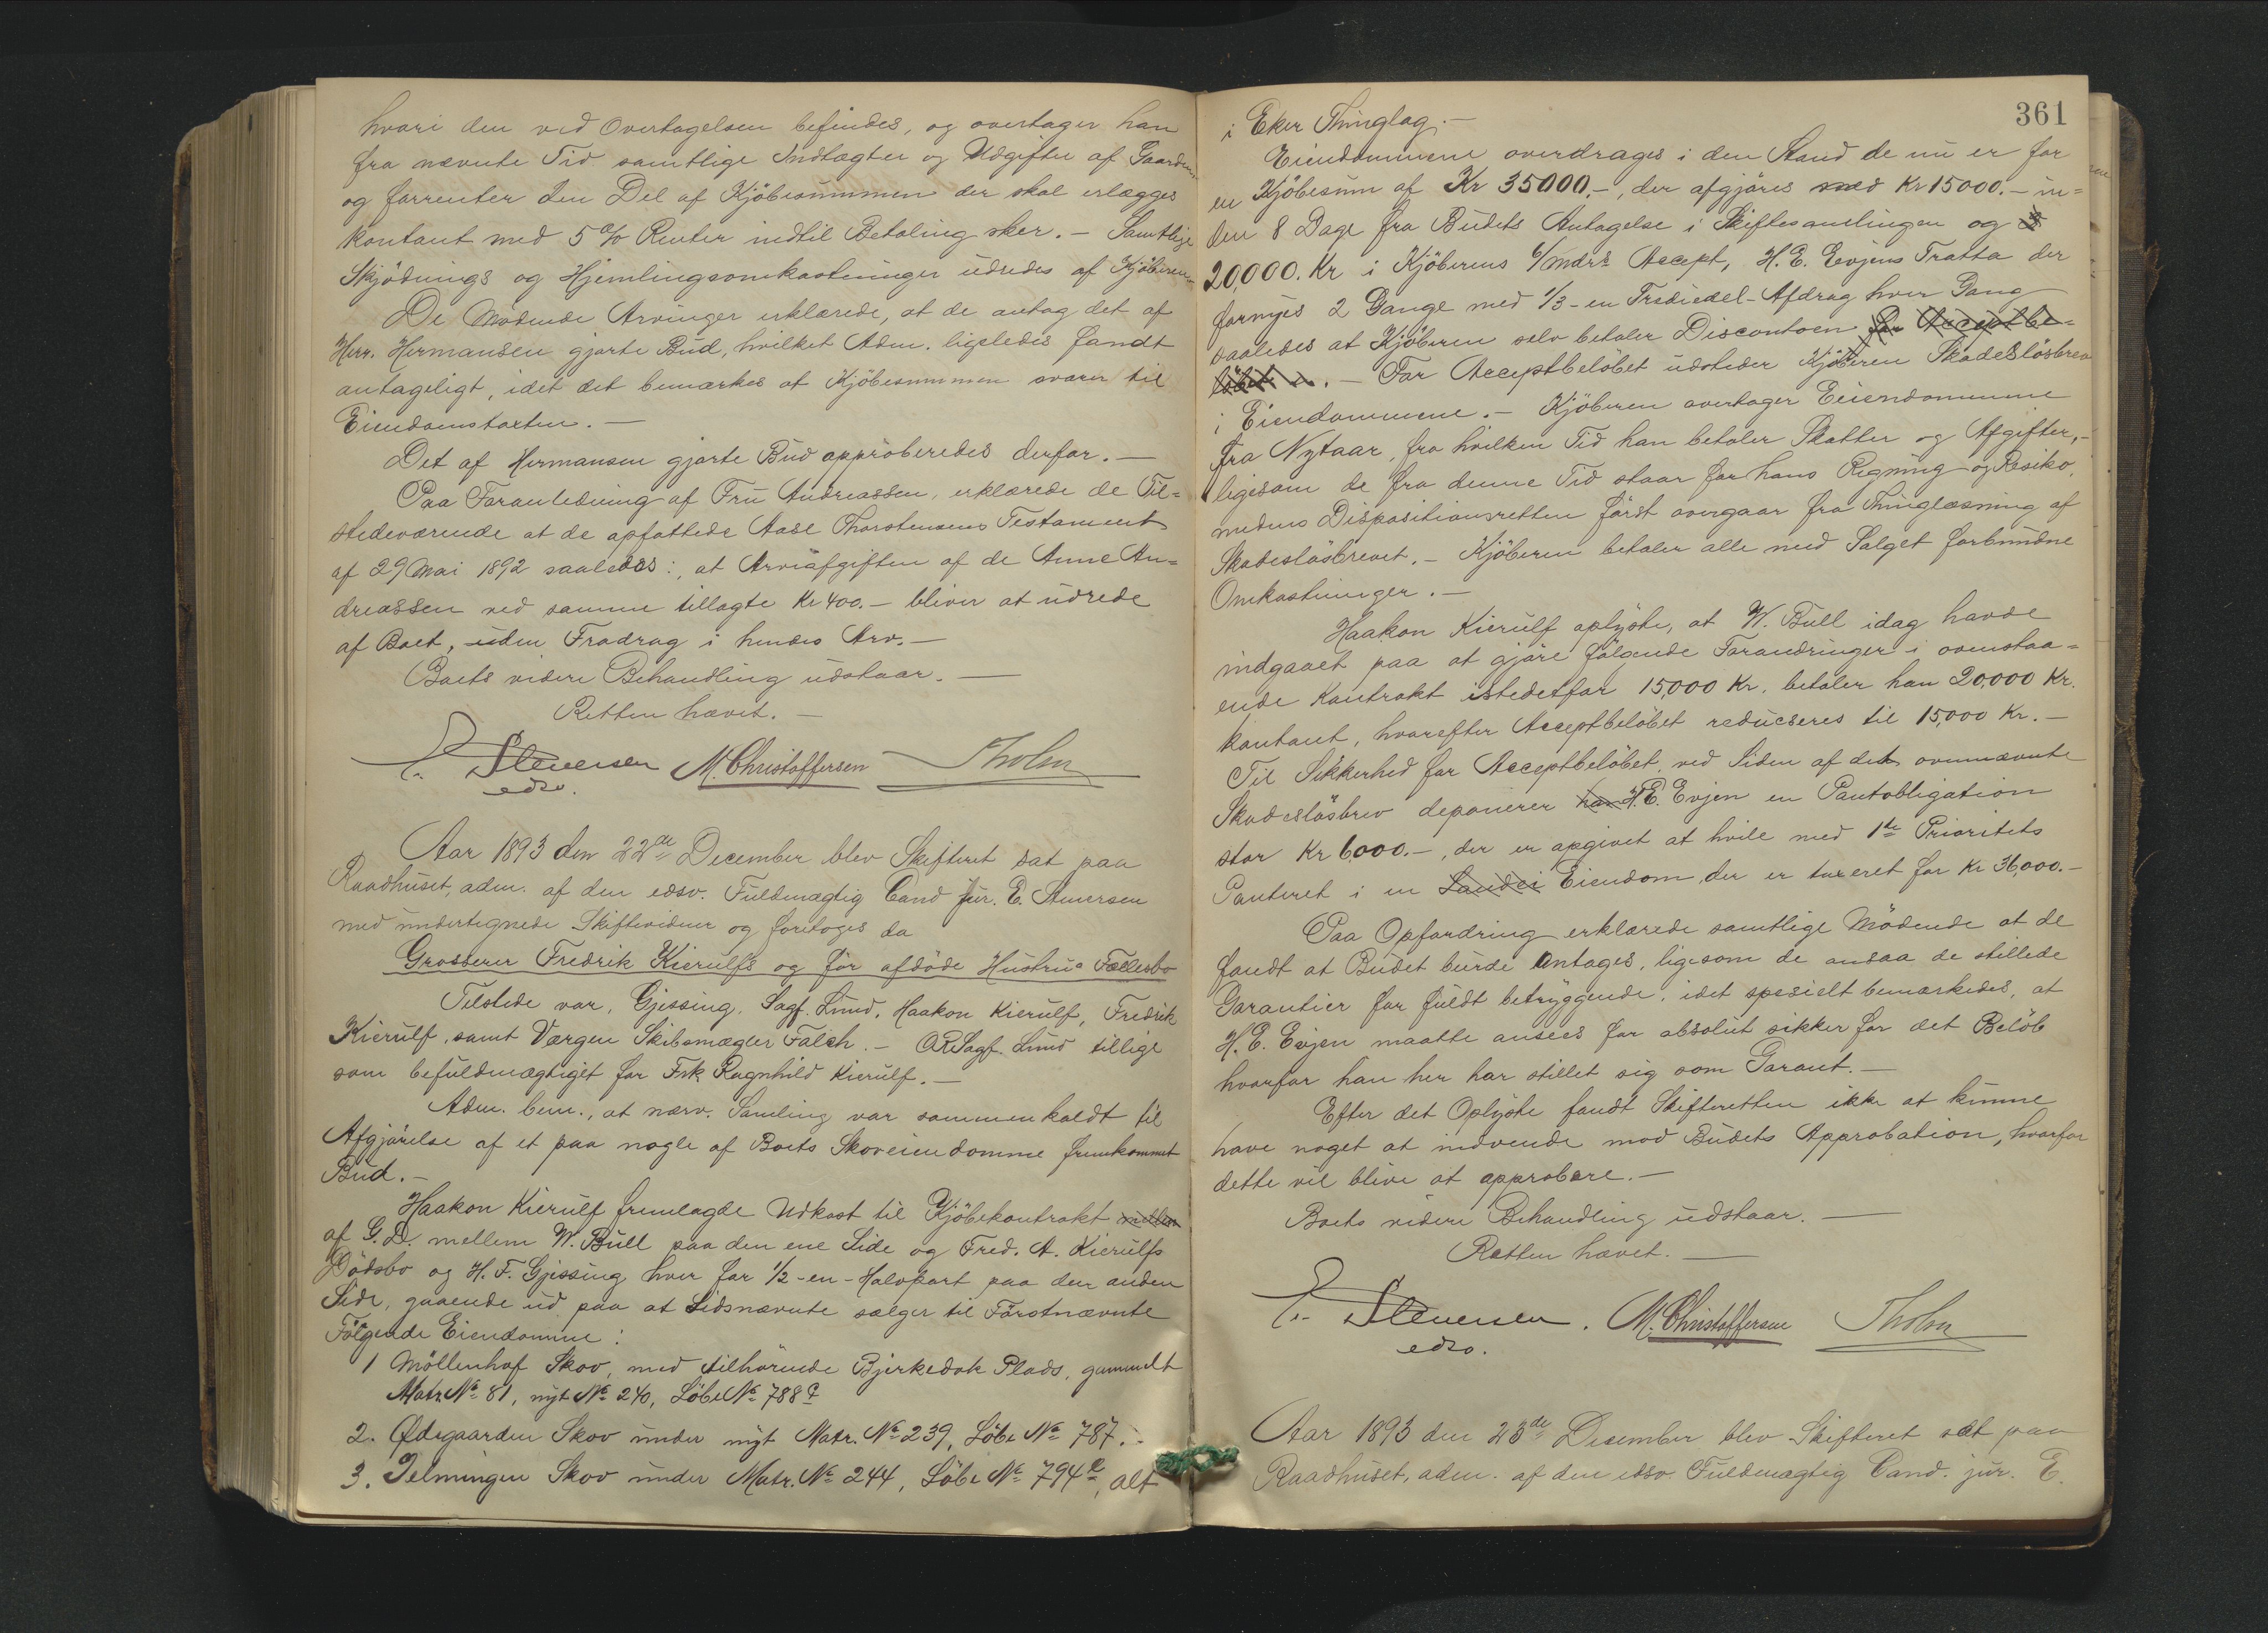 hvori den ved Overtagelsen befindes, og overtager han
fra nævnte Tid samtlige Indtægter og Udgifter af Gaarden,
og forrenter den Del af Kjöbesummen der skal erlægges
kontant med 5 % Renter indtil Betaling sker. – Samtlige
Skjödnings og Hjemlingsomkostninger udredes af Kjöberen.
De Mödende Arvinger erklærede, at de antog det af
Herr. Hermansen gjorte Bud, hvilket Adm. ligeledes fandt
antageligt, idet det bemærkes at Kjöbesummen svarer til
Eiendomstaxten. –
Det af Hermansen gjorte Bud approberedes derfor. –
Paa Foranledning af Fru Andreassen, erklærede de Til=
stedeværende at de opfattede Aase Thorstensens Testament
af 29 Mai 1892 saaledes:, at Arveafgiften af de Anne An=
dreassen ved samme tillagte Kr 400.– bliver at udrede
af Boet, uden Fradrag i hendes Arv. –
Boets videre Behandling udstaar. –
Retten hævet. –
E. Steuersen M. Christoffersen Tholm
edsv.
Aar 1893 den 22de December blev Skifteret sat paa
Raadhuset, adm. af den edsv. Fuldmægtig Cand jur. E. Steuersen
med undertegnede Skiftevidner og foretoges da
Grosserer Fredrik Kierulfs og før afdöde Hustrus Fællesbo
Tilstede var, Gjessing, Sagf. Lund, Haakon Kierulf, Fredrik
Kierulf, samt Værgen Skibsmægler Falch. – ORSagf. Lund tillige
som befuldmægtiget for Frk. Ragnhild Kierulf. –
Adm. bem., at nærv. Samling var sammenkaldt til
Afgjörelse af et paa nogle af Boets Skoveiendomme fremkommet
Bud. –
Haakon Kierulf fremlagde Udkast til Kjöbekontrakt mellem
af G. D. mellem W. Bull paa den ene Side og Fred. A. Kierulfs
Dödsbo og H. F. Gjessing hver for 1/2 -en- Halvpart paa den anden
Side, gaaende ud paa at Sidsnævnte sælger til Förstnævnte
Fölgende Eiendomme:
1 Möllenhof Skov, med tilhörende Bjerkedok Plads, gammelt
Matr. No 81, nyt No 240, Löbe No 788a
2. Ødegaarden Skov under nyt Matr. No 239, Löbe No 787. –
3. Jelmingen Skov under Matr. No 244, Löbe No 794e, alt
361
i Eker Thinglag. –
Eiendommene overdrages i den Stand de nu er for
en Kjöbesum af Kr 35000.–, der afgjöres med Kr 15000.– in=
den 8 Dage fra Budets Antagelse i Skiftesamlingen og
20,000. Kr i Kjöberens 6/mdrs Accept, H. E. Evjens Tratta der
fornyes 2 Gange med 1/3 -en Trediedel- Afdrag hver Gang
saaledes at Kjöberen selv betaler Discontoen for Acceptbe=
löbet. – For Acceptbelöbet udsteder Kjöberen Skadeslösbrev
i Eiendommene. – Kjöberen overtager Eiendommene
fra Nytaar, fra hvilken Tid han betaler Skatter og Afgifter, –
ligesom de fra denne Tid staar for hans Regning og Resiko,
medens Dispositionsretten först overgaar fra Thinglæsning af
Skadeslösbrevet. – Kjöberen betaler alle med Salget forbundne
Omkostninger. –
Haakon Kierulf oplyste, at W. Bull idag havde
indgaaet paa at gjöre fölgende Forandringer i ovenstaa=
ende Kontrakt istedetfor 15,000 Kr. betaler han 20,000 Kr.
kontant, hvorefter Acceptbelöbet reduceres til 15,000 Kr. –
Til Sikkerhed for Acceptbelöbet, ved Siden af det ovennævnte
Skadeslösbrev deponerer han H. E. Evjen en Pantobligation
stor Kr 6000.–, der er opgivet at hvile med 1ste Prioritets
Panteret i en Landei Eiendom der er taxeret for Kr 36,000. –
Paa Opfordring erklærede samtlige Mödende at de
fandt at Budet burde Antages, ligesom de ansaa de stillede
Garantier for fuldt betryggende, idet spesielt bemærkedes, at
H. E. Evjen maatte ansees for absolut sikker for det Belöb
hvorfor han her har stillet sig som Garant. –
Efter det Oplyste fandt Skifteretten ikke at kunne
have noget at indvende mod Budets Approbation, hvorfor
dette vil blive at approbere. –
Boets videre Behandling udstaar. –
Retten hævet. –
E. Steuersen. M. Christoffersen Tholm
edsv.
Aar 1893 den 23de December blev Skifteret sat paa
Raadhuset, adm. af den edsv. Fuldmægtig Cand. jur. E.